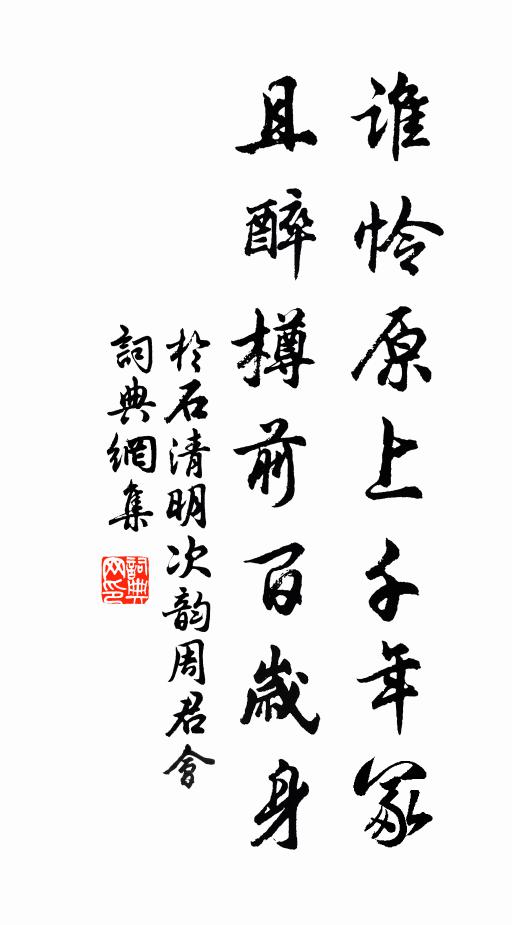 誰憐原上千年冢
且醉樽前百歲身
於石清明次韵周君會
詞典網集
詞典网印